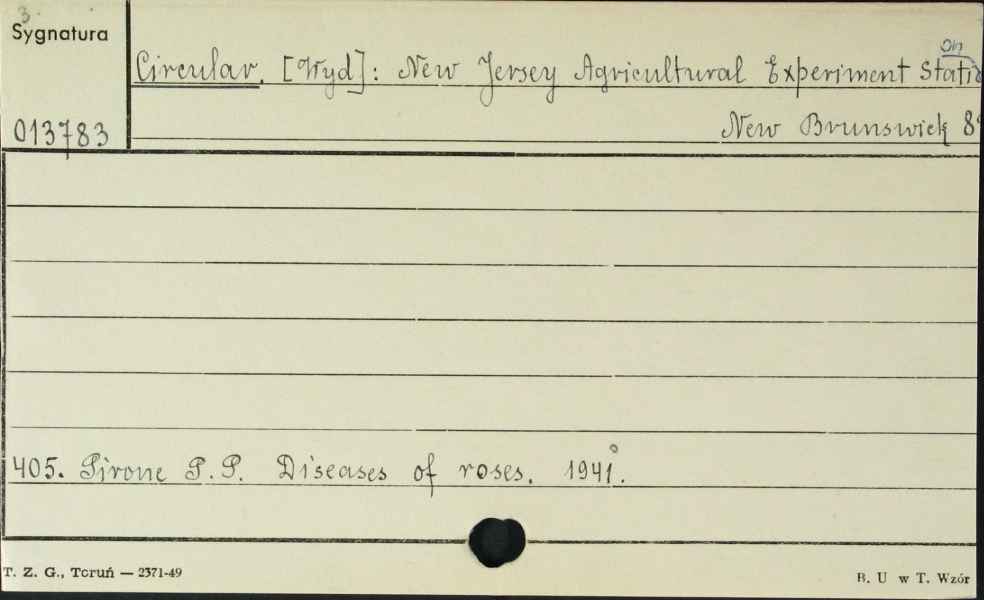 3.
Sygnatura
013783
Circular. [Wyd]: New Jersey Agricultural Experiment Station
New Brunswick 8°
405. Pirone P.P. Diseases of roses. 1941.
T. Z. G., Toruń — 2371-49
B. U w T. Wzór